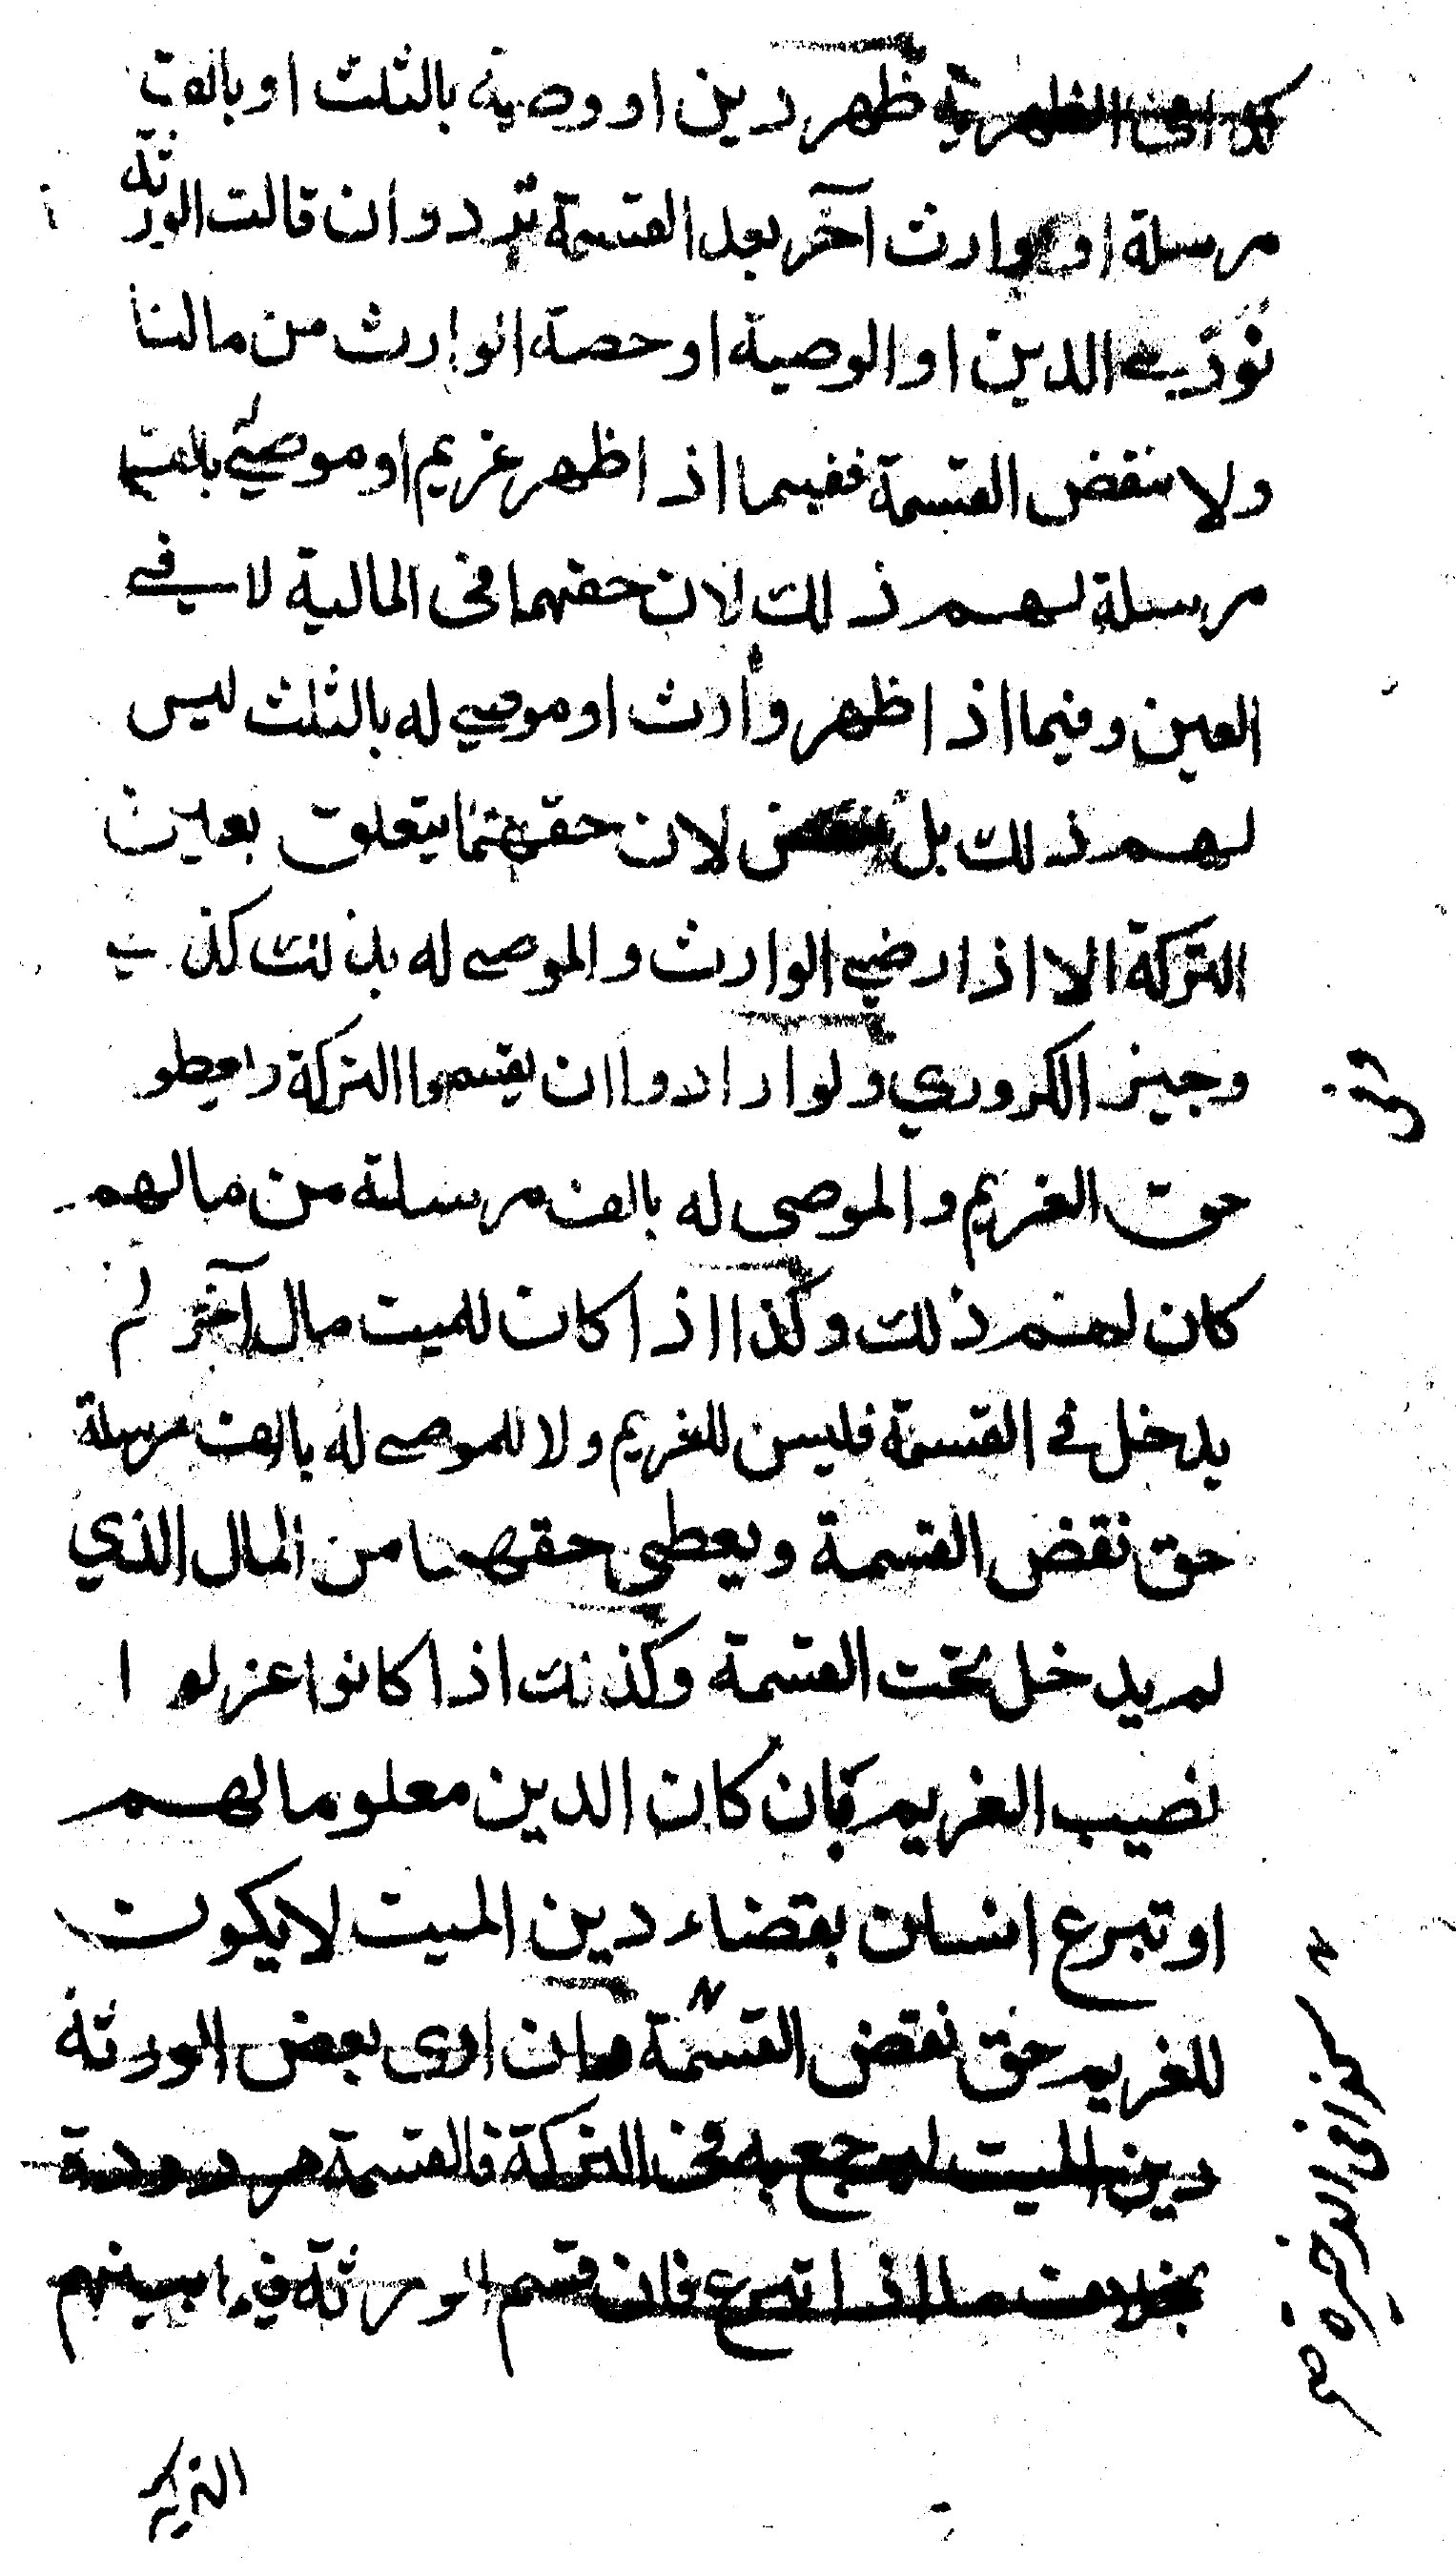 كذا في الظهيرية ظهر دين او وصية بالثلث او بالف
مرسلة او وارث آخر بعد القسمة ترد وان قالت الورثة
نؤدي الدين او الوصية او حصة الوارث من مالنا
ولا ننقض القسمة ففيما اذا ظهر غريم او موصى بالف
مرسلة لهم ذلك لان حقهما في المالية لا في
العين وفيما اذا ظهر وارث او موصي له بالثلث ليس
لهم ذلك بل تنقض لان حقهما يتعلق بعين
التركة الا اذا رضي الوارث والموصى له بذلك كذا في
وجيز الكردري ولو ارادوا ان يقسموا التركة واعطوا
حق الغريم والموصى له بالف مرسلة من مالهم
كان لهم ذلك وكذا اذا كان للميت مال آخر لم
يدخل في القسمة فليس للغريم ولا للموصى له بالف مرسلة
حق نقض القسمة ويعطى حقهما من المال الذي
لم يدخل تحت القسمة وكذلك اذا كانوا عزلوا
نصيب الغريم فان كان الدين معلوما لهم
او تبرع انسان بقضاء دين الميت لا يكون
للغريم حق نقض القسمة وان ادى بعض الورثة
دين الميت ليرجع به في التركة فالقسمة مردودة
بخلاف ما اذا تبرع فان قسم الورثة فيما بينهم
كذا في الذخيرة